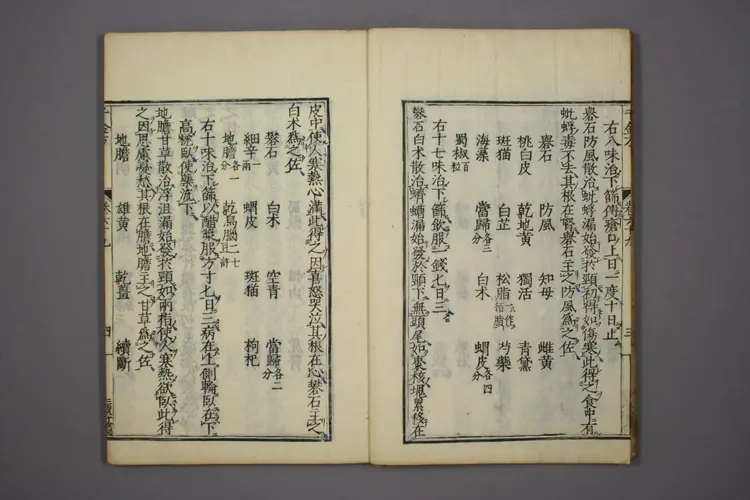 右八味治下篩傅瘡口上日一度十日止
礜石防風散治蚍蜉漏始發於頸初得如傷寒此得之食中有
蚍蜉毒不去其根在腎礜石主之防風爲之佐
礜石 防風 知母 雌黃
桃白皮 乾地黃 獨活 青黛
斑猫 白芷 松脂 芍藥
海藻 當歸各三分 白术 蝟皮各四分
蜀椒百粒
右十七味治下篩飲服一錢七日三
礬石白术散治蠐螬漏始發於頸下無頭尾如棗核塊累移在
皮中使人寒熱心滿此得之因喜怒哭泣其根在心礬石主之
白术爲之佐
礬石 白术 空青 當歸各二分
細辛一兩 蝟皮 斑猫 枸杞
地膽各一分 乾烏腦
右十味治下篩以醋漿服方寸七日三病在上側輪臥在下
高枕臥使藥流下
地膽甘草散治浮沮漏始發於頸如兩指使人寒熱欲臥此得
之因思慮憂愁其根在膽地膽主之甘草爲之佐
地膽 雄黃 乾薑 續斷
四